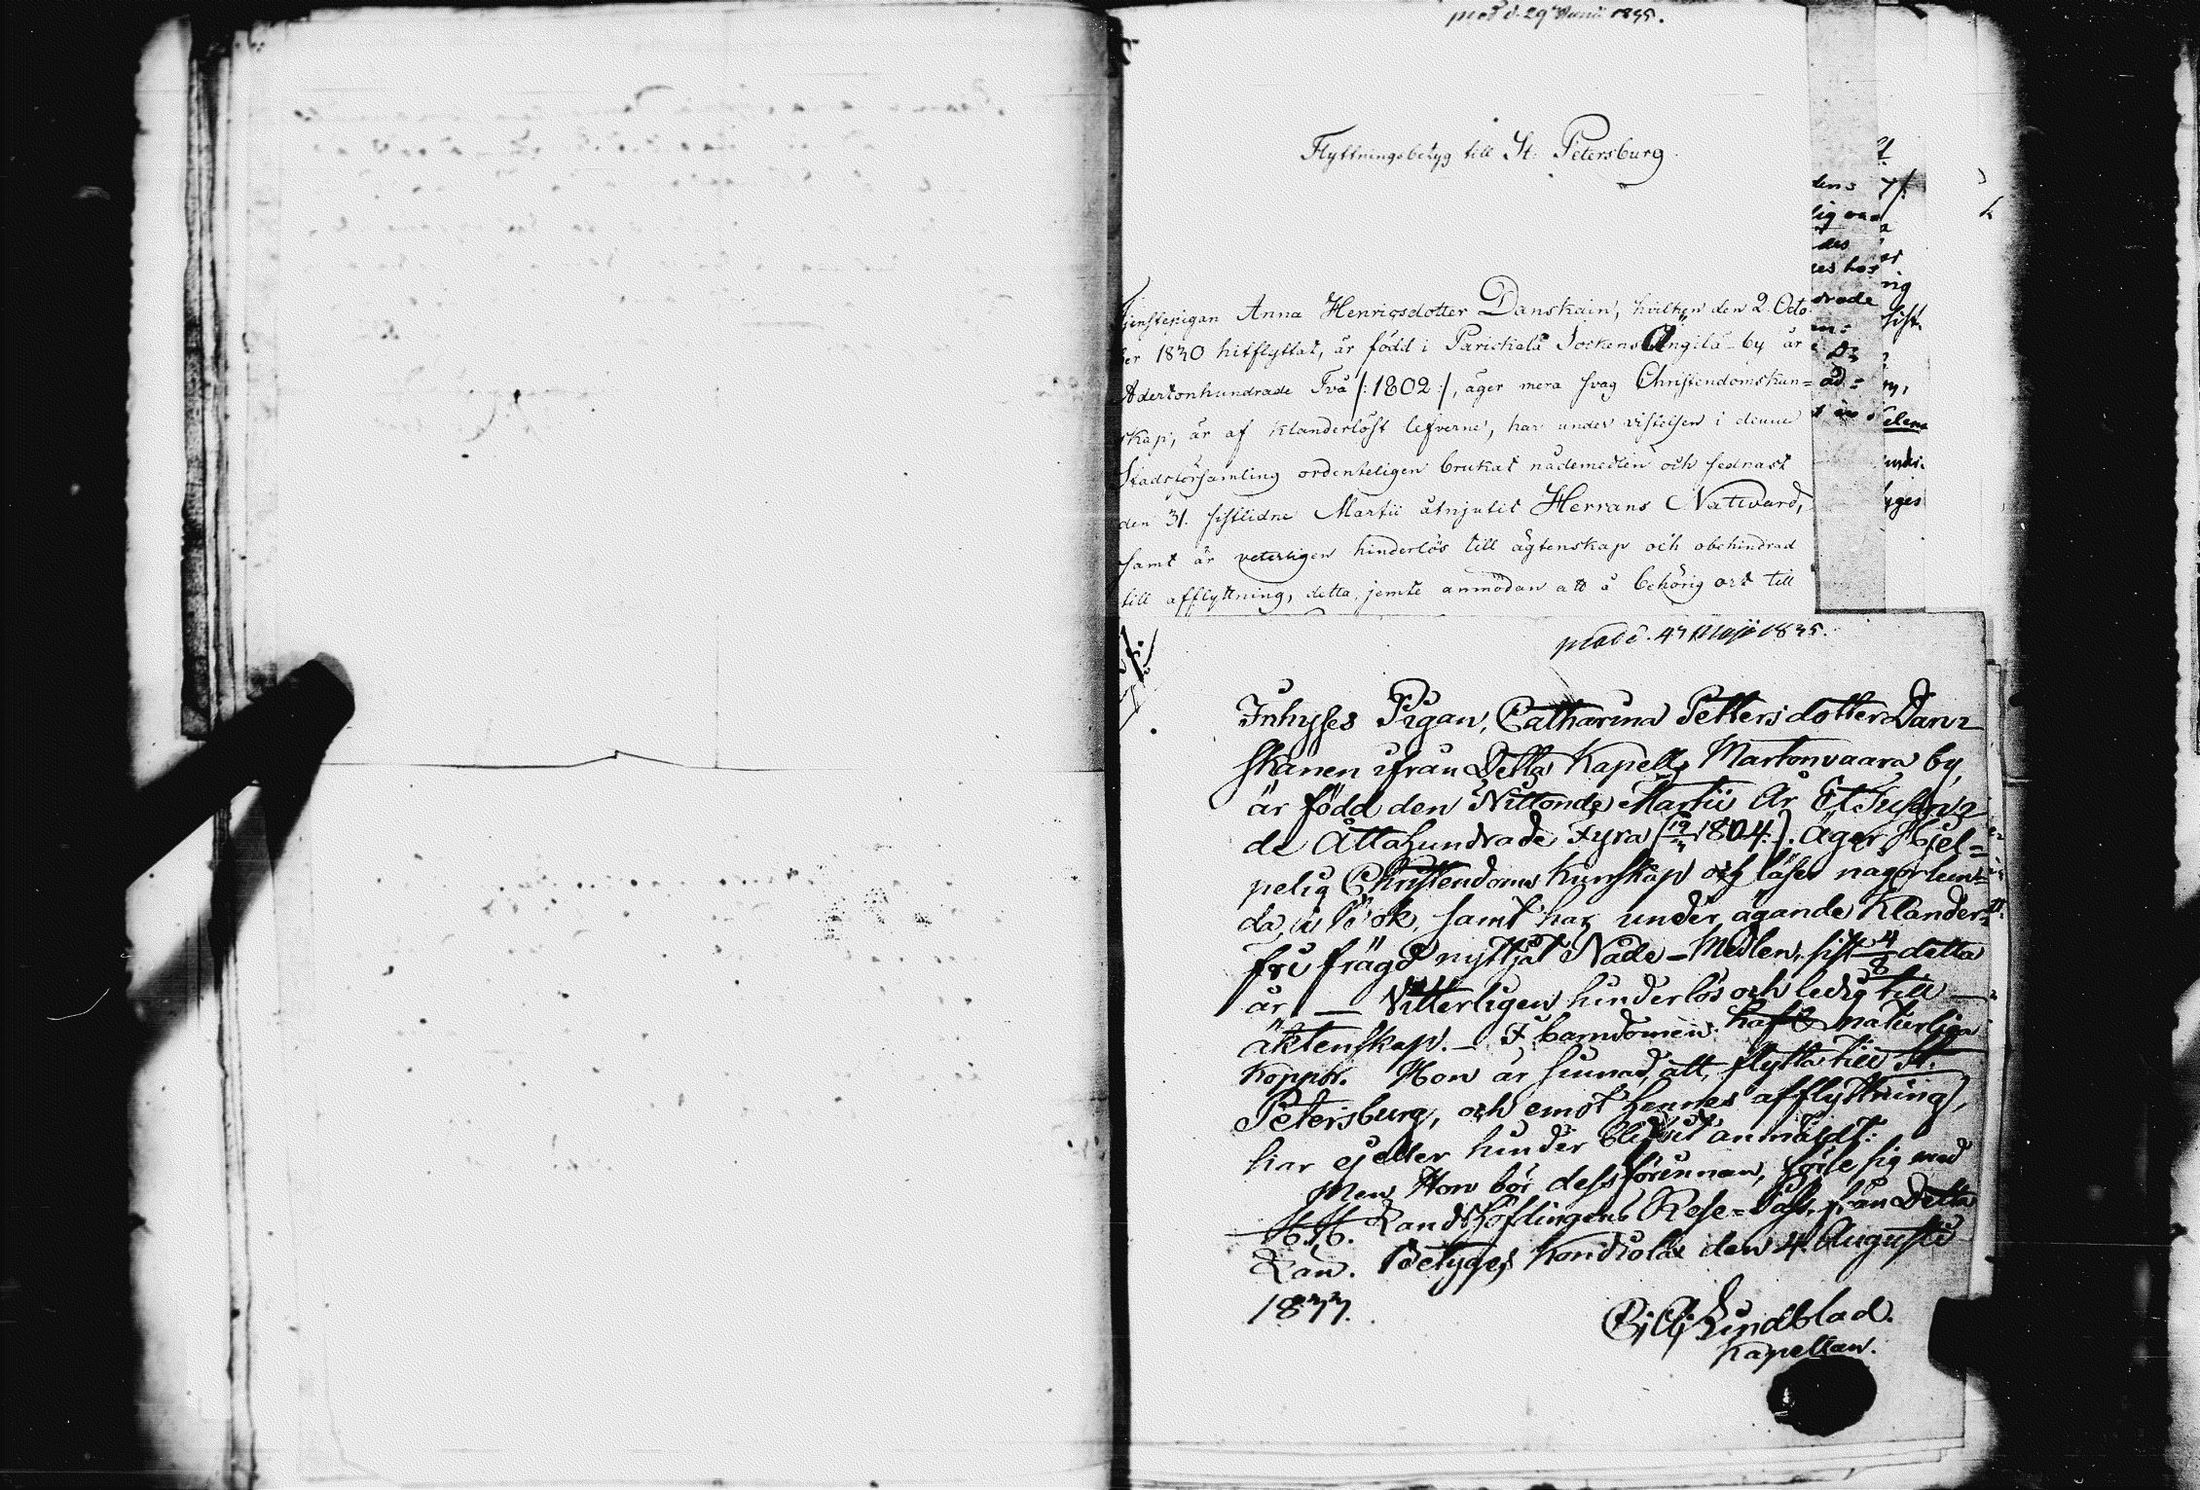 prod d. 29 Junii 1835.
Flyttningsbetyg till St. Petersburg.
Tjenstepigan Anna Henricsdotter Danskain, hvilken den 2. Octo
ber 1830 hitflyttat, är född i Parickala Sockens Angila by år
Adertonhundrade Två /: 1802 :/, äger mera svag Christendomskun=
skap, är af klanderlöst lefverne, har under vistelsen i denne
Stadsförsamling ordenteligen brukat nådemedlen och sednast
den 31. sistlidne Martii åtnjutit Herrans Nattvard,
samt är veterligen hinderlös till ägtenskap och obehindrad
till afflyttning, detta, jemte anmodan att å behörig ort till
prod d. Maji 1835.
Inhyses Pigan, Catharina Pettersdotter Dan=
skanen ifrån Detta Kapells Martonvaara by,
är född den Nittonde Martii År Ettusen=
de Åttahundrade Fyra (19/3 1804.). Äger Hjel=
pelig Christendoms Kunskap och läser någorlun=
da i Bok, samt har under ägande Klander=
fri frägd nyttjat Nåde-Medlen, sist 4/8 detta
år, — Vitterligen hinderlös och ledig till —
äktenskap. — I barndomen haft naturliga
koppor. Hon är sinnad, att flytta till St.
Petersburg, och emot hennes afflyttning,
har ej eller hinder blifvit anmäldt:
Men Hon bör dessförinnan, förse sig med
H.H. Landshöfdingens Rese=Pass, från Detta
Län. Betyges Kondiolax den 4. Augusti
1833.
Lindblad.
Kapellan.